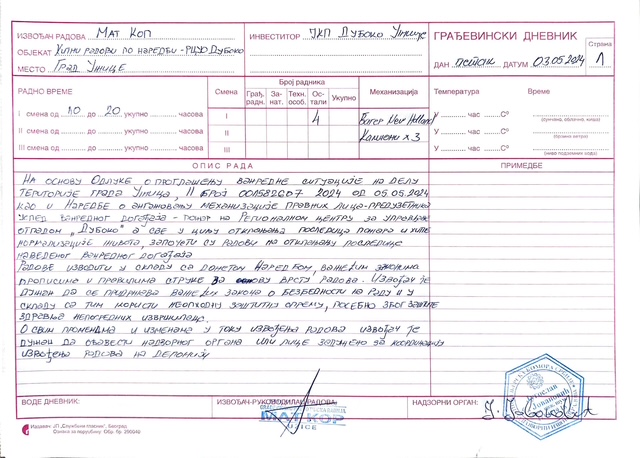 ИЗВОЂАЧ РАДОВА МАТ КОП
ОБЈЕКАТ ХИТНИ РАДОВИ ПО НАРЕДБИ - РЦУО ДУБОКО
МЕСТО ГРАД УЖИЦЕ
ИНВЕСТИТОР ЈКП ДУБОКО УЖИЦЕ
ГРАЂЕВИНСКИ ДНЕВНИК
ДАН ПЕТАК ДАТУМ 03.05.2024
Страна
1
РАДНО ВРЕМЕ
I смена од 10 до 20 укупно часова
II смена од до укупно часова
III смена од до укупно часова
Смена
I
II
III
Број радника
Грађ. радн.
За- нат.
Техн. особ.
Ос- тали
Укупно
4
Механизација
БАГЕР NEW HOLLAND
КАМИОНИ x 3
Температура
У час С°
У час С°
У час С°
Време
(сунчано, облачно, киша)
ОПИС РАДА
ПРИМЕДБЕ
НА ОСНОВУ ОДЛУКЕ О ПРОГЛАШЕЊУ ВАНРЕДНЕ СИТУАЦИЈЕ НА ДЕЛУ
ТЕРИТОРИЈЕ ГРАДА УЖИЦА, II БРОЈ 001582607 2024 ОД 05.05.2024
КАО И НАРЕДБЕ О АНГАЖОВАЊУ МЕХАНИЗАЦИЈЕ ПРАВНИХ ЛИЦА-ПРЕДУЗЕТНИКА
УСЛЕД ВАНРЕДНОГ ДОГАЂАЈА - ПОЖАР НА РЕГИОНАЛНОМ ЦЕНТРУ ЗА УПРАВЉАЊЕ
ОТПАДОМ „ДУБОКО" А СВЕ У ЦИЉУ ОТКЛАЊАЊА ПОСЛЕДИЦА ПОЖАРА И
НОРМАЛИЗАЦИЈЕ ЖИВОТА, ЗАПОЧЕТИ СУ РАДОВИ НА ОТКЛАЊАЊУ ПОСЛЕДИЦЕ
НАВЕДЕНОГ ВАНРЕДНОГ ДОГАЂАЈА
РАДОВЕ ИЗВОДИТИ У СКЛАДУ СА ДОНЕТОМ НАРЕДБОМ, ВАЖЕЋИМ ЗАКОНИМА
ПРОПИСИМА И ПРАВИЛИМА СТРУКЕ ЗА ОВУ ВРСТУ РАДОВА. ИЗВОЂАЧ ЈЕ
ДУЖАН ДА СЕ ПРИДРЖАВА ВАЖЕЋИХ ЗАКОНА О БЕЗБЕДНОСТИ НА РАДУ И У
СКЛАДУ СА ТИМ КОРИСТИ НЕОПХОДНУ ЗАШТИТНУ ОПРЕМУ, ПОСЕБНО ЗБОГ ЗАШТИТЕ
ЗДРАВЉА НЕПОСРЕДНИХ ИЗВРШИЛАЦА.
О СВИМ ПРОМЕНАМА И ИЗМЕНАМА У ТОКУ ИЗВОЂЕЊА РАДОВА ИЗВОЂАЧ ЈЕ
ДУЖАН ДА ОБАВЕСТИ НАДЗОРНОГ ОРГАНА ИЛИ ЛИЦЕ ЗАДУЖЕНО ЗА КООРДИНАЦИЈУ
ИЗВОЂЕЊА РАДОВА НА ДЕПОНИЈИ
ВОДЕ ДНЕВНИК:
ИЗВОЂАЧ-РУКОВОДИЛАЦ РАДОВА:
МАТ КОП
НАДЗОРНИ ОРГАН:
Издавач: ЈП „Службени гласник", Београд
Ознака за поруџбину: Обр. бр. 290040